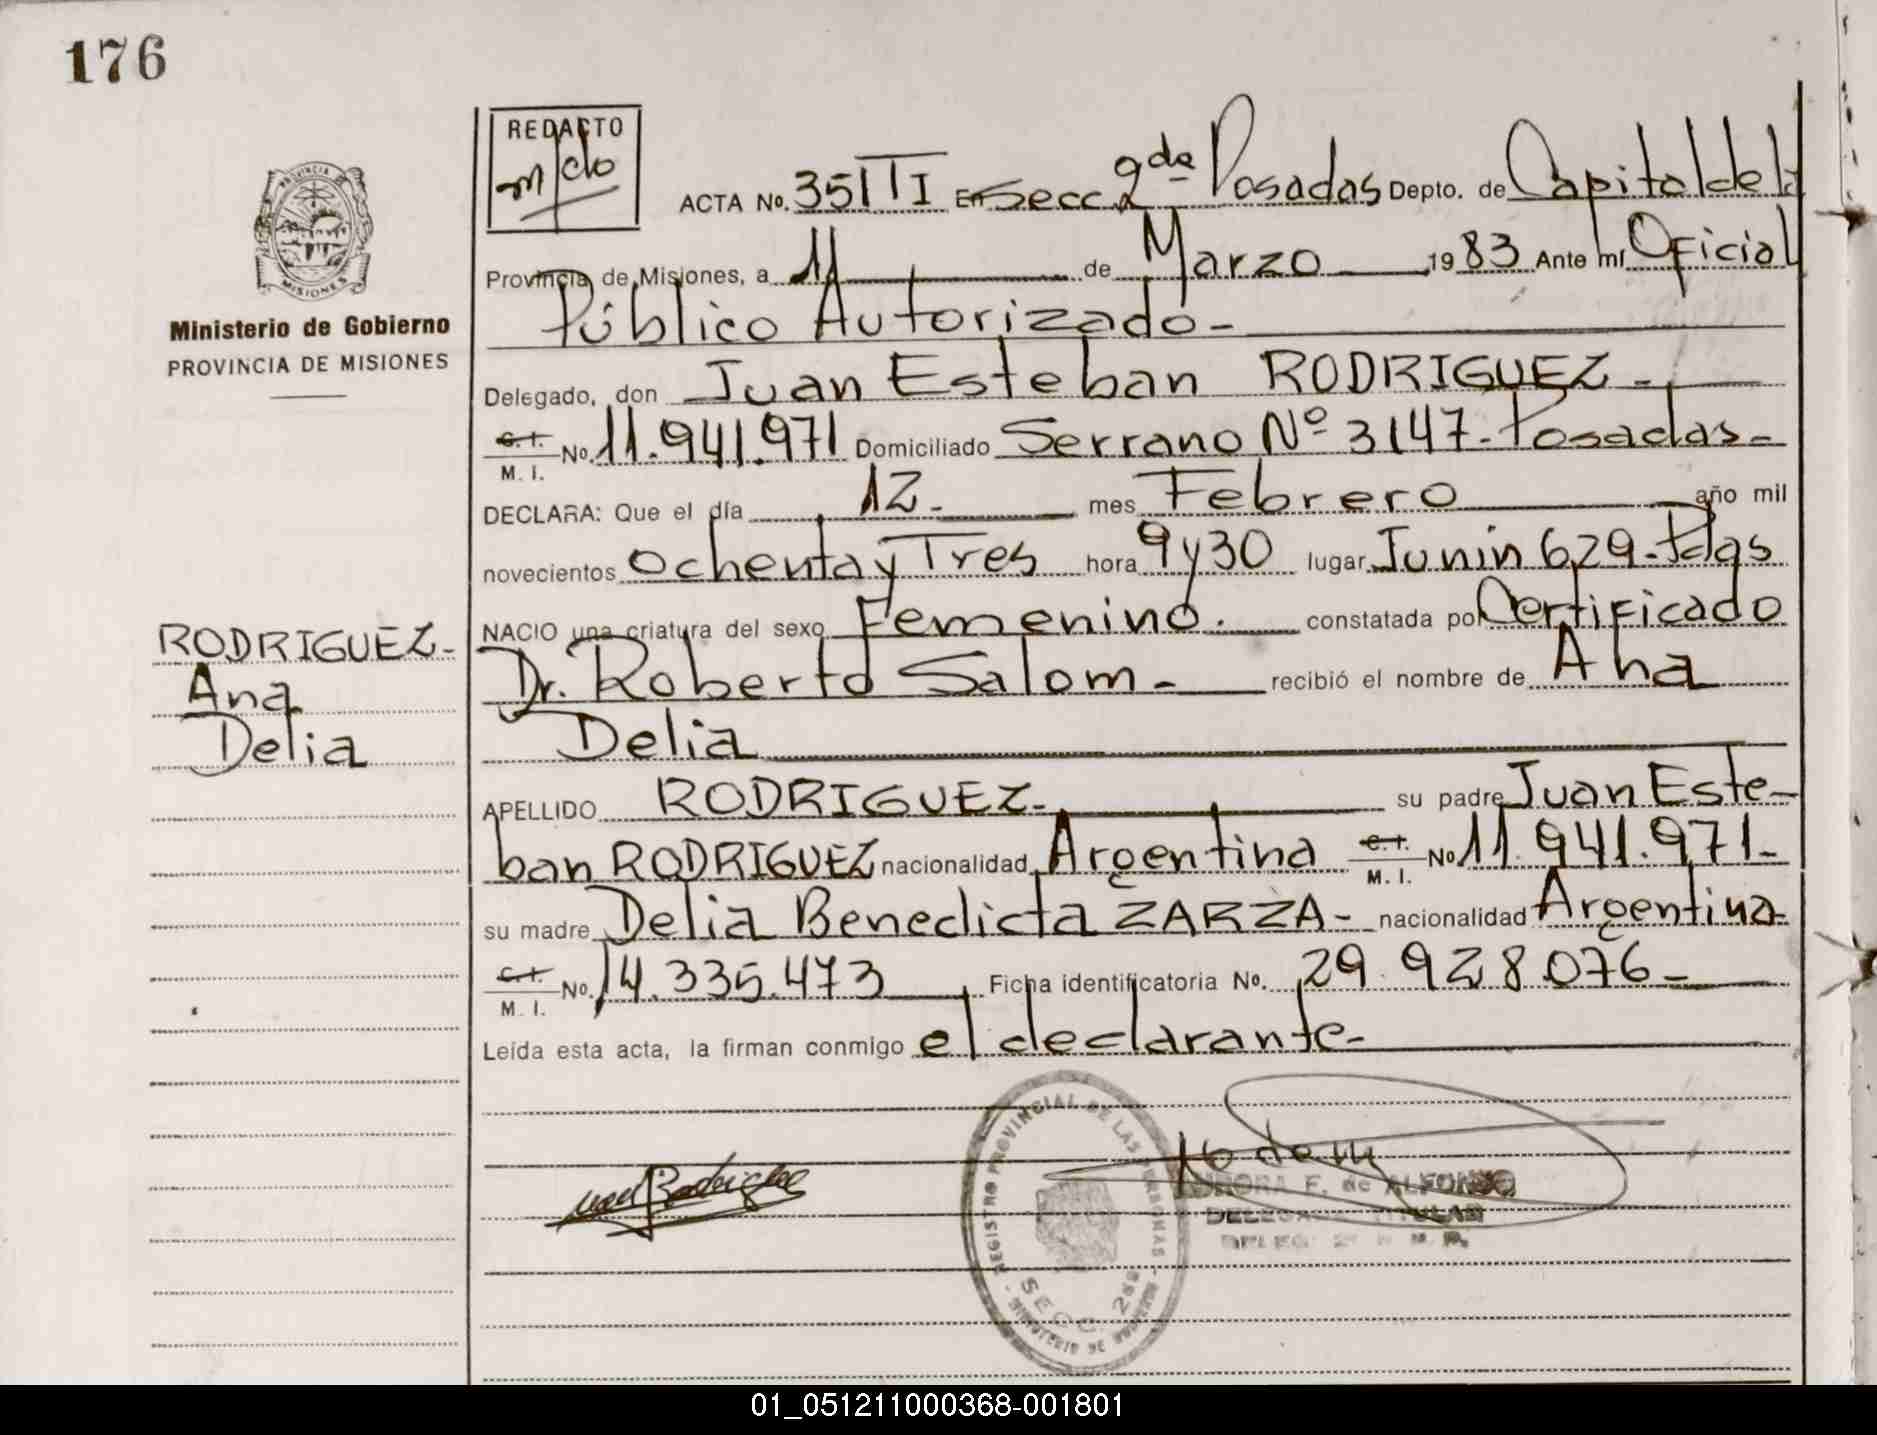 176
REDACTO
PROVINCIA DE
MISIONES
Ministerio de Gobierno
PROVINCIA DE MISIONES
ACTA No. 351 TI En Secc. 2da Posadas Depto. de Capital de la
Provincia de Misiones, a 11 de Marzo 1983 Ante mí Oficial
Público Autorizado-
Delegado, don Juan Esteban RODRIGUEZ-
C.I. M. I. No. 11.941.971 Domiciliado Serrano Nº 3147-Posadas-
DECLARA: Que el día 12- mes Febrero año mil
novecientos Ochenta y Tres hora 9 y 30 lugar Junin 629-Pdas
NACIO una criatura del sexo Femenino. constatada por Certificado
Dr. Roberto Salom- recibió el nombre de Ana
Delia
RODRIGUEZ-
Ana
Delia
APELLIDO RODRIGUEZ- su padre Juan Este-
ban RODRIGUEZ nacionalidad Argentina C.I. M. I. No 11.941.971-
su madre Delia Benedicta ZARZA- nacionalidad Argentina-
C.I. M. I. No. 14.335.473 Ficha identificatoria No. 29.928.076-
Leída esta acta, la firman conmigo el declarante-
REGISTRO PROVINCIAL DE LAS PERSONAS
SECC. 2da
MINISTERIO DE GOBIERNO
AURORA F. de ALFONSO
DELEGADA TITULAR
01_051211000368-001801